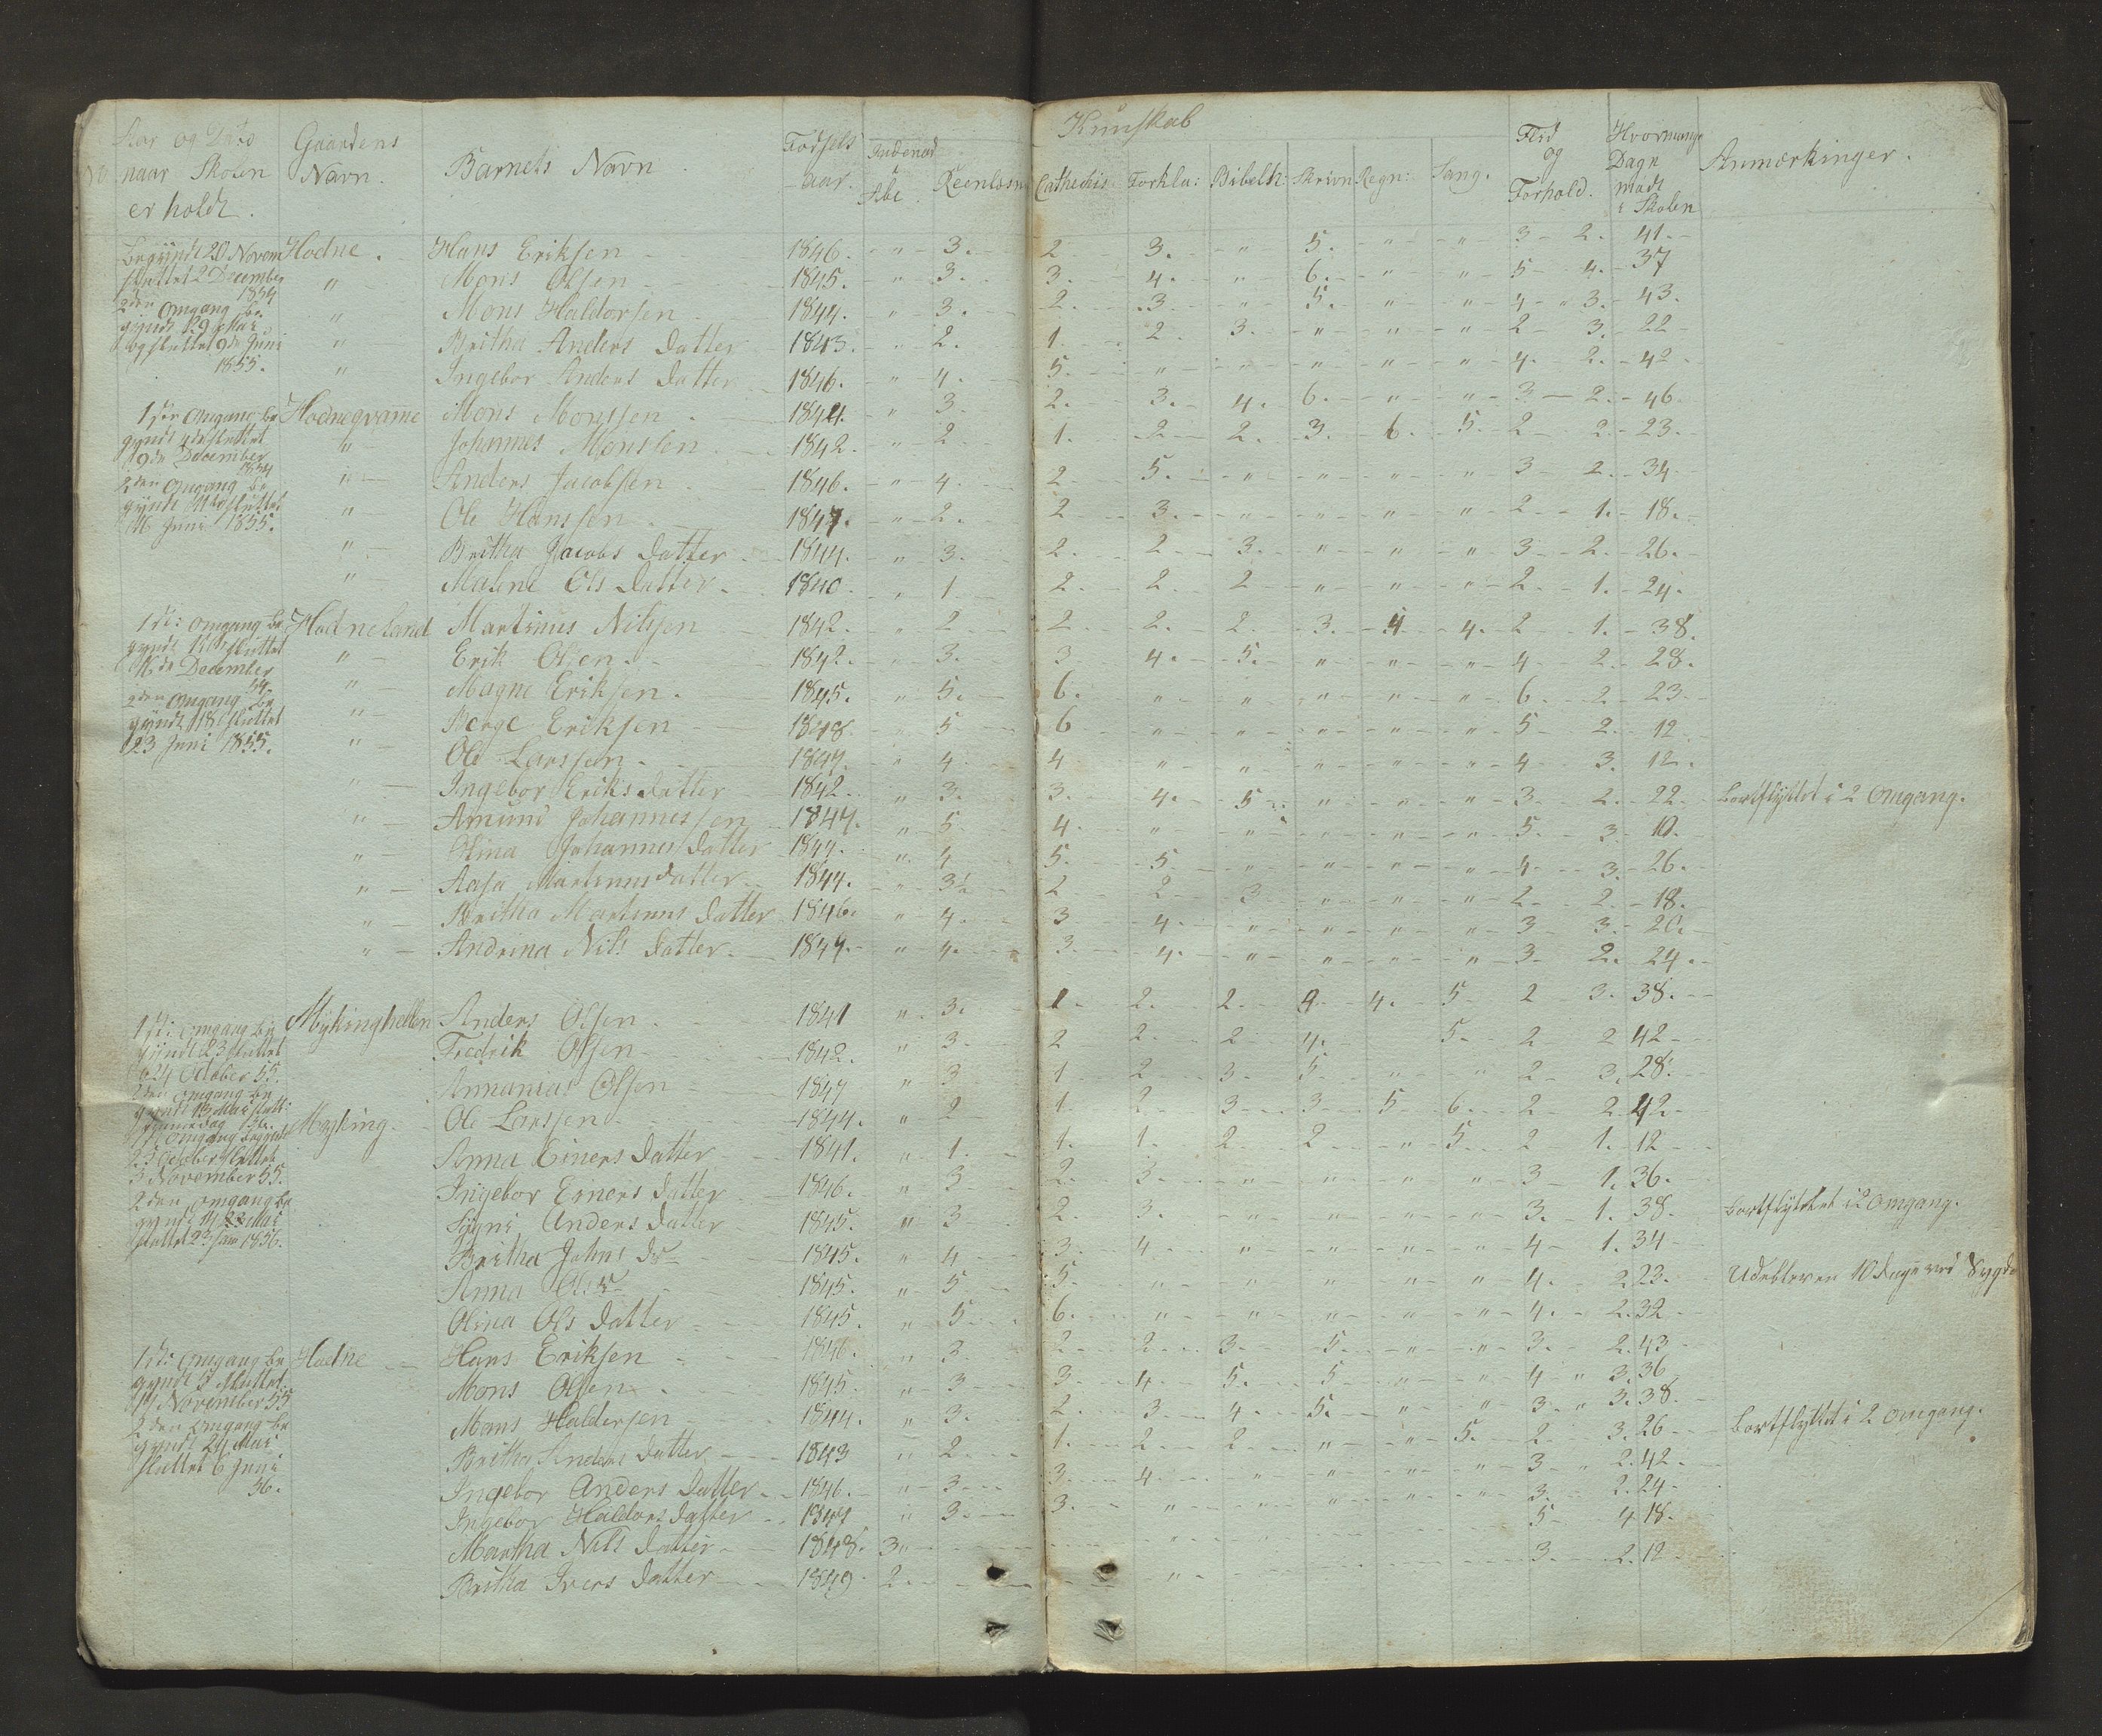 Aar og Dato naar Skolen er holdt. Gaardens Navn. Barnets Navn Fødsels aar. Indenad i Abc Reenlæsn Kunskab Cathechis: Forkla: Bibelh: Skrivn Regn: Sang. Flid og Forhold. Hvormange Dage mødt i Skolen Anmærkinger.
Begyndt 20 Novem Hodne. Hans Eriksen 1846. " 3. 2 3. " 5. " " 3 2. 41.
sluttet 2 December 1854 " Mons Olsen 1845. " 3. 3. 4. " 6. " " 5 4. 37
2den Omgang be- " Mons Haldorsen 1844. " 3. 2. 3 " 5. " " 4 3. 43.
gyndt 29 Mai " Britha Anders Datter 1843. " 2. 1. 2. 3. " " " 2 3. 22
og sluttet 9de Juni 1855. " Ingebor Anders Datter 1846. " 4. 5. " " " " " 4. 2. 42.
1ste Omgang be Hodnegvame Mons Monssen 1844. " 3. 2. 3. 4. 6. " " 3 2. 46.
gyndt sluttet " Johannes Monssen 1842. " 2 1. 2 2. 3. 6. 5. 2 2. 23.
9de December 1854 " Anders Jacobsen 1846. " 4. 2 5. " " " " 3 2. 34.
2den Omgang be " Ole Hanssen 1847. " 2. 2 3. " " " " 2 1. 18.
gyndt 11te sluttet " Britha Jacobs Datter 1844. " 3. 2. 2 3. " " " 3 2. 26.
16 Juni 1855. " Malene Ols Datter 1840. " 1 2. 2. 2 " " " 2. 1. 24.
1ste: Omgang be Hodneland Martinus Nilssen 1842. " 2 2 2. 2. 3. 4 4. 2 1. 38.
gyndt 11 sluttet " Erik Olsen 1842. " 3. 3 4. 5. " " " 4 2. 28.
16de December 54. " Magne Eriksen. 1845. " 5. 6. " " " " " 6. 2 23
2den Omgang be " Berge Eriksen 1848 " 5 6 " " " " " 5 2. 12
gyndt 18 sluttet " Ole Larssen 1847. " 4. 4 " " " " " 4 3. 12.
23 Juni 1855. Ingebor Eriks Datter 1842. " 3. 3. 4. 5 " " " 3 2. 22 bortflyttet i 2 Omgang.
" Amund Johannessen 1847. " 5 4. " " " " " 5. 3. 10.
" Olina Johannes Datter 1844. " 4 5. 5. " " " " 4. 3. 26.
" Aasa Martinusdatter 1844. " 3½ 2 2 3. " " " 2 2. 18.
" Britha Martinus Datter 1846. " 4. 3 4. " " " " 3 3. 20.
" Andrina Nils Datter. 1844. " 4. 3. 4. " " " " 3 2. 24.
1ste: Omgang be Mykinghellen Anders Olsen 1841 " 3. 1. 2. 2. 4. 4. 5 2 3. 38.
gyndt 23 sluttet Fredrik Olsen 1842. " 3. 2 2. 2 4. 5. 2 2 42
24 October 55. Annanias Olsen 1847 " 3 1 2 3. 5 " " 2 3. 28.
2den Omgang be
gyndt 13 Mai Myking. Ole Larssen 1844. " 2 1. 2. 3 3 5 6. 2 2. 42
1ste Omgang begyndt
25 October sluttet Anna Einers Datter 1841. " 1. 1. 1. 2. 2 " 5. 2 1. 12
3 November 55. Ingebor Einers Datter 1846. " 3 2. 3. " " " " 3 1. 36.
2den Omgang be Sygni Anders Datter 1845. " 3 2. 3. " " " " 3. 1. 38. bortflyttet i 2 Omgang.
gyndt 14 Mai Britha Johns Dr 1845. " 4 3. 4 " " " " 4 1. 34
sluttet 23 1856. Anna Ols Dr 1845. " 5 5. " " " " " 4. 2. 23. Udebleven 10 Dage ved Sygd
Olina Ols Datter 1845. " 5 6. " " " " " 4. 2. 32
1ste: Omgang be Hodne Hans Eriksen 1846. " 3 2 2. 3. 5. " " 3. 2. 43
gyndt 5 sluttet Mons Olsen 1845. " 3 3. 4. 5. 5 " " 4 " 3. 36
14 November 55 Mons Haldorsen 1844. " 3. 2. 3. 4. 5. " " 3. " 3. 38.
2den Omgang be Britha Anders Datter 1843 " 2. 1. 2. 2. " " 5. 2. 3. 26 bortflyttet i 2 Omgang.
gyndt 24 Mai Ingebor Anders Datter 1846. " 3 3. 4. " " " " 3 " 2. 42.
sluttet 6 Juni Ingebor Haldors Datter 1847 " 3. 3. " " " " " 3. 2. 24.
56. Martha Nils Datter 1848. 3 " " 5 4. 18.
Britha Ivers Datter 1849 2. " 3. 2. 12